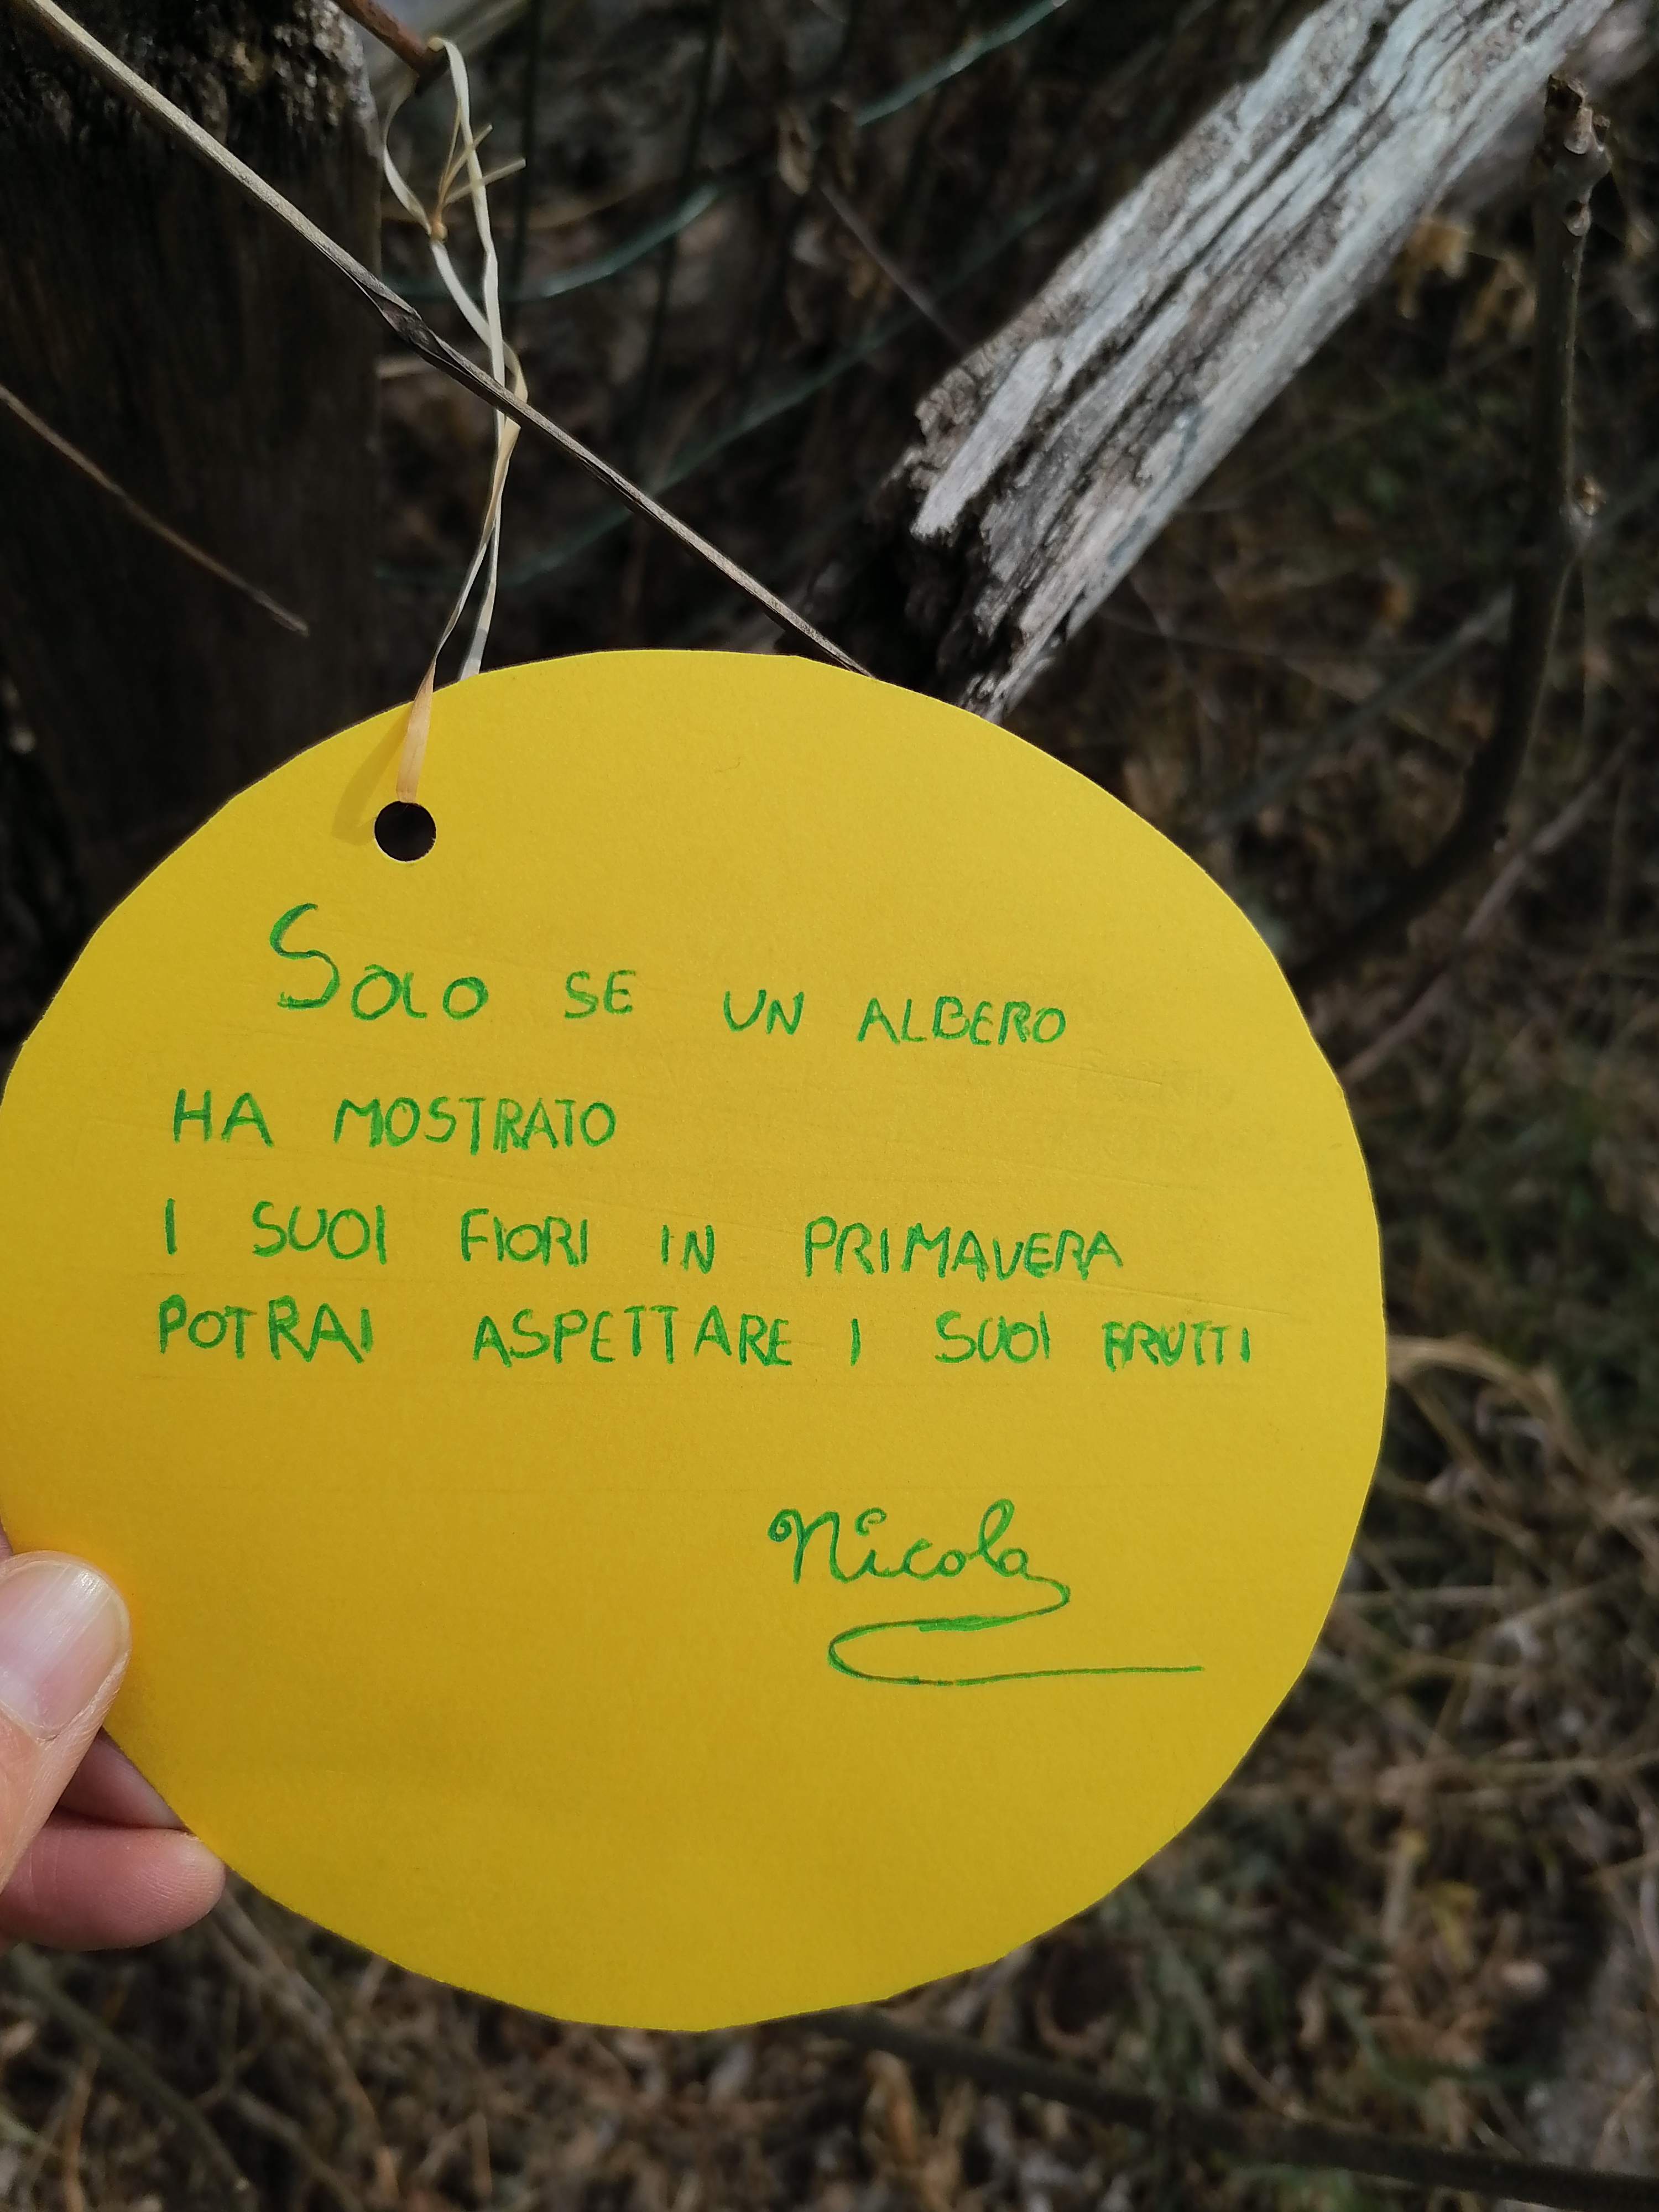 Solo SE UN ALBERO
HA MOSTRATO
I SUOI FIORI IN PRIMAVERA
POTRAI ASPETTARE I SUOI FRUTTI
Nicola